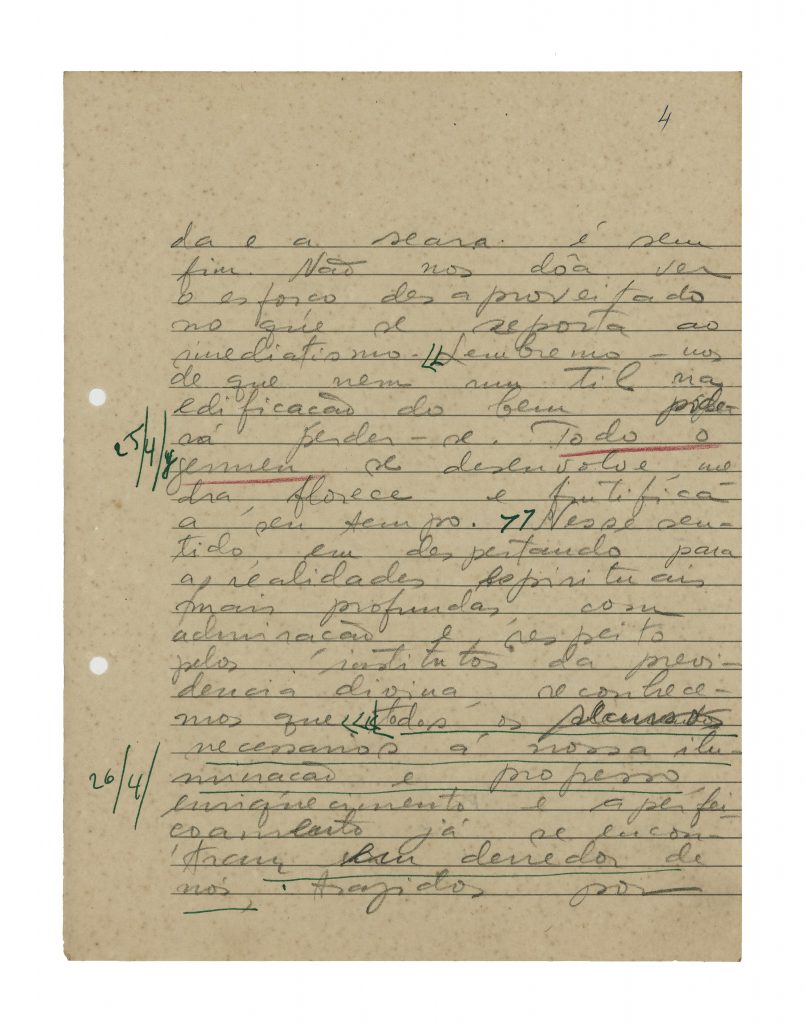 4
da e a seara é sem
fim. Não nos dôa ver
o esforco desaproveitado
no que se reporta ao
imediatismo. «Lembremo-nos
de que nem um til na
edificacão do bem poder-
rá perder-se. Todo o
25/4/
germen se desenvolve, me
dra florece e frutifica
a seu tempo. » Nesse sen-
tido, em despertando para
as realidades espirituais
mais profundas com
admiracão e respeito
pelos institutos da previ-
dencia divina, reconhece-
mos que todos os recursos
necessarios á nossa ilu-
26/4/
minacão e progresso
enriquecimento e aperfei
coamento já se encon-
tram em derredor de
nós, trazidos por